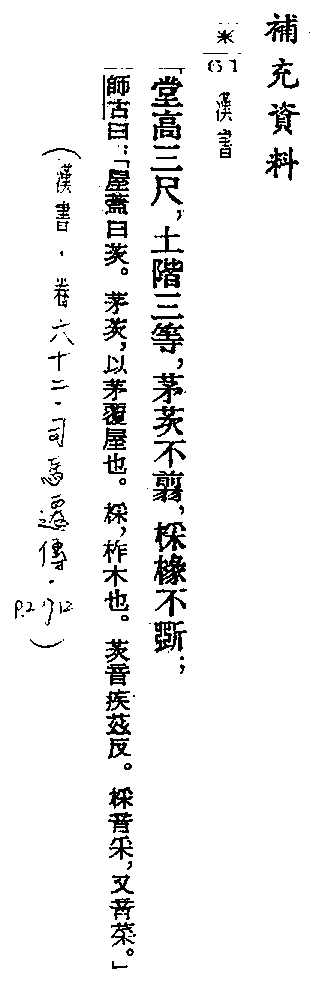 補充資料
*61 漢書
「堂高三尺,土階三等,茅茨不翦,棌椽不斲;
師古曰:「屋蓋曰茨。茅茨,以茅覆屋也。棌,柞木也。茨音疾茲反。棌音采,又音菜。」
(漢書.卷六十二.司馬遷傳.P.2712)